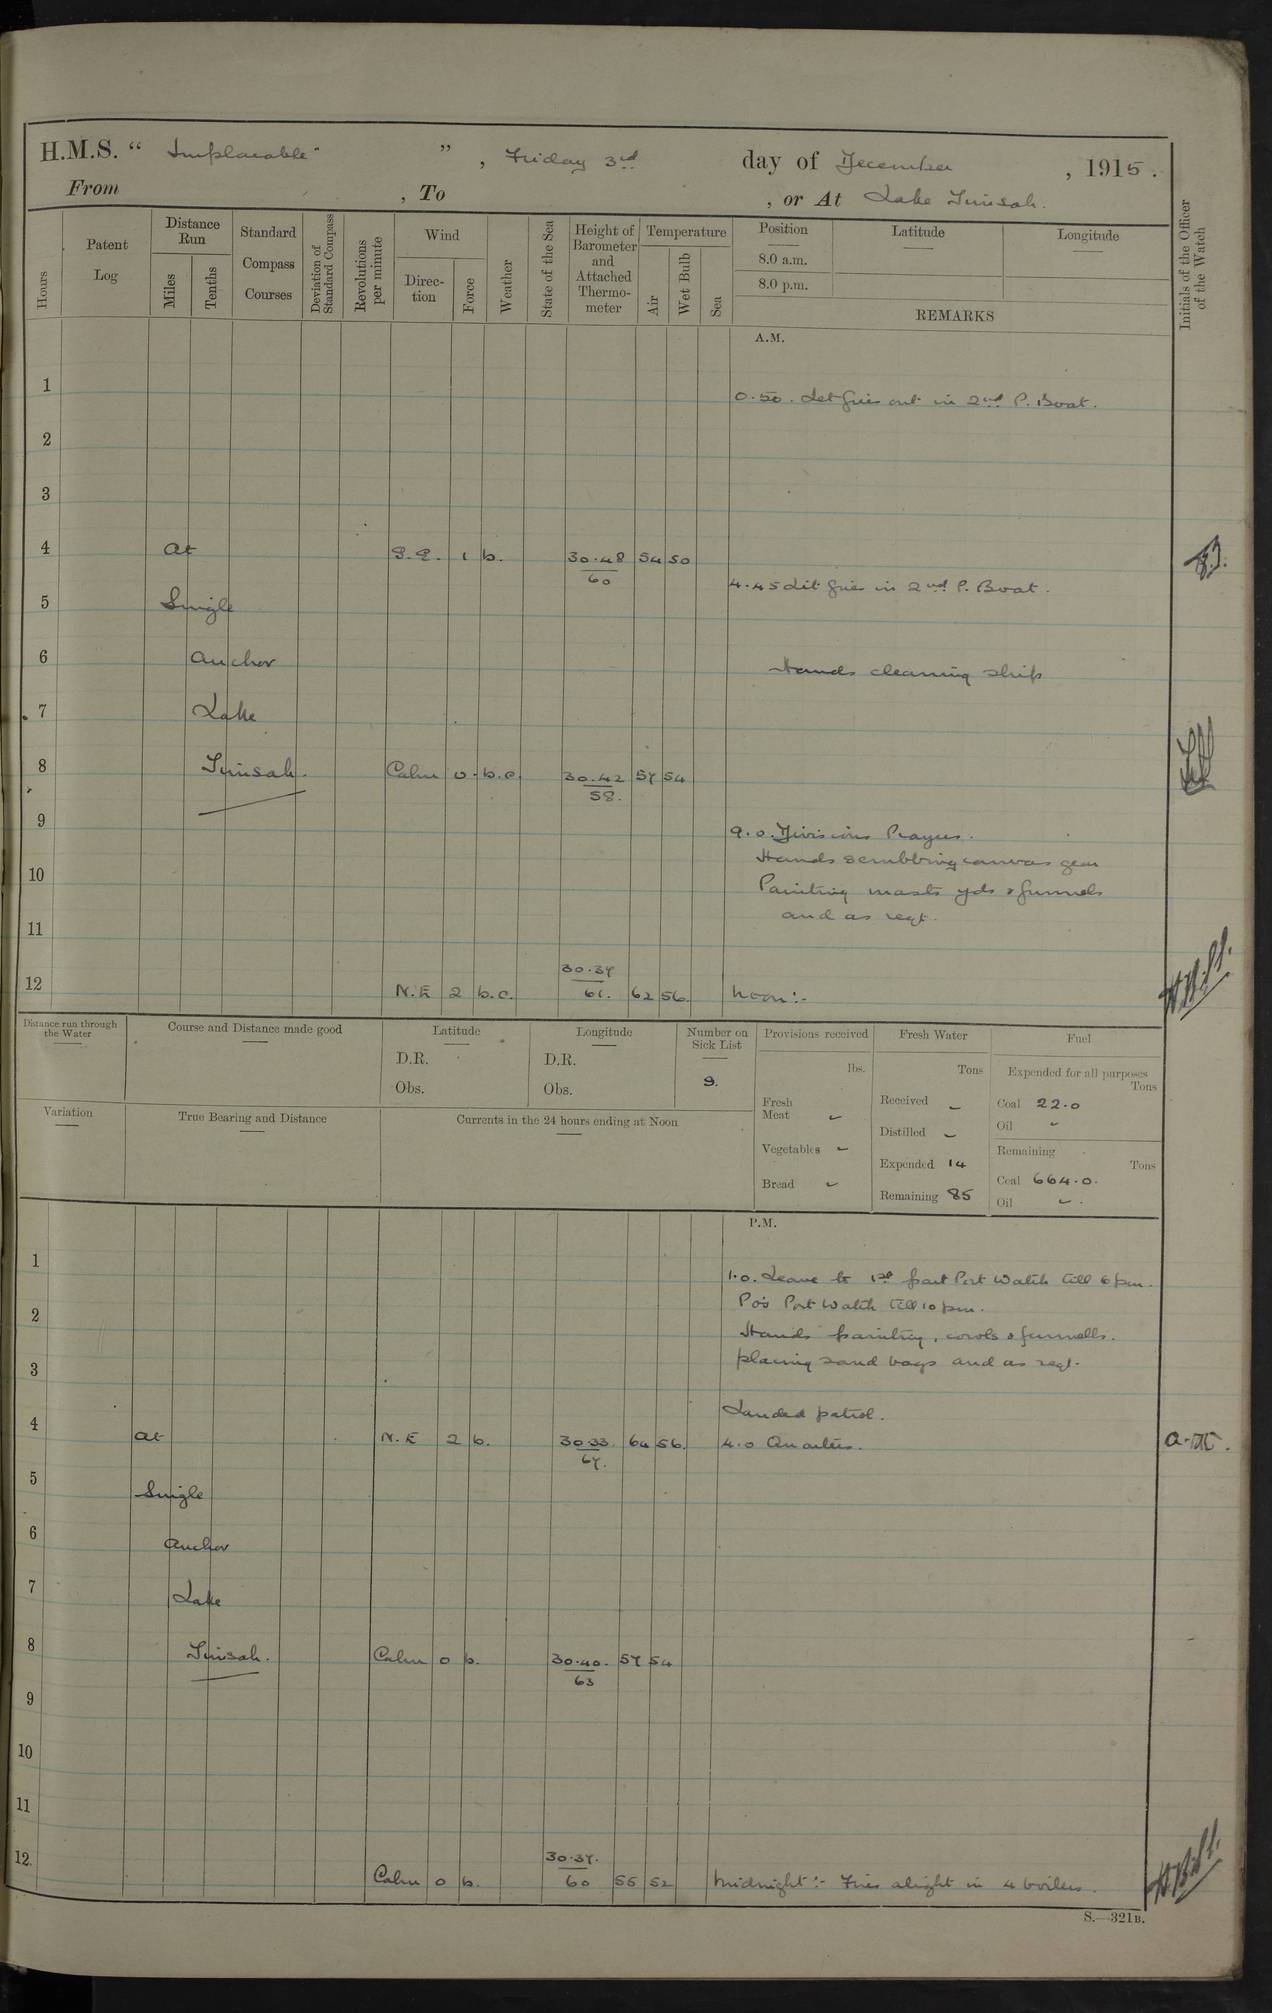 H.M.S. “ Implacable” ” , Friday 3rd day of December , 1915 .
From , To , or At Lake Timsah.
Hours
Patent Log
Distance Run
Miles
Tenths
Standard Compass Courses
Deviation of Standard Compass
Revolutions per minute
Wind
Direction
Force
Weather
State of the Sea
Height of Barometer and Attached Thermometer
Temperature
Air
Wet Bulb
Sea
Position
8.0 a.m.
8.0 p.m.
Latitude
Longitude
REMARKS
Initials of the Officer of the Watch
A.M.
1
0.50. Let fires out in 2nd P. Boat.
2
3
4 At S.E. 1 b. 30.48 54 50
60
4.45 Lit fires in 2nd P. Boat.
5 Single
6 Anchor
Hands cleaning ship
7 Lake
8 Timsah. Calm 0. b.c. 30.42 57 54
58.
9
9.0. Divisions Prayers.
Hands scrubbing canvas gear
10
Painting masts yds & funnels
and as reqt.
11
30.37
12 N.E 2 b.c. 61. 62 56. Noon:-
Distance run through the Water
Course and Distance made good
Latitude
D.R.
Obs.
Longitude
D.R.
Obs.
Number on Sick List
9.
Provisions received
lbs.
Fresh Meat ~
Vegetables ~
Bread ~
Fresh Water
Tons
Received ~
Distilled ~
Expended 14
Remaining 85
Fuel
Expended for all purposes
Tons
Coal 22.0
Oil ~
Remaining
Tons
Coal 664.0.
Oil ~.
Variation
True Bearing and Distance
Currents in the 24 hours ending at Noon
P.M.
1
1.0. Leave to 1st part Port Watch till 6 pm.
PO's Port Watch till 10 pm.
2
Hands painting, cowls & funnells.
placing sand bags and as reqt.
3
Landed patrol.
4 At N.E 2 b. 30.33. 64 56. 4.0 Quarters.
67.
5 Single
6 Anchor
7 Lake
8 Timsah. Calm 0 b. 30.40. 57 54
63
9
10
11
30.37.
12. Calm 0 b. 60 55 52 Midnight:- Fires alight in 4 boilers.
S.—321B.